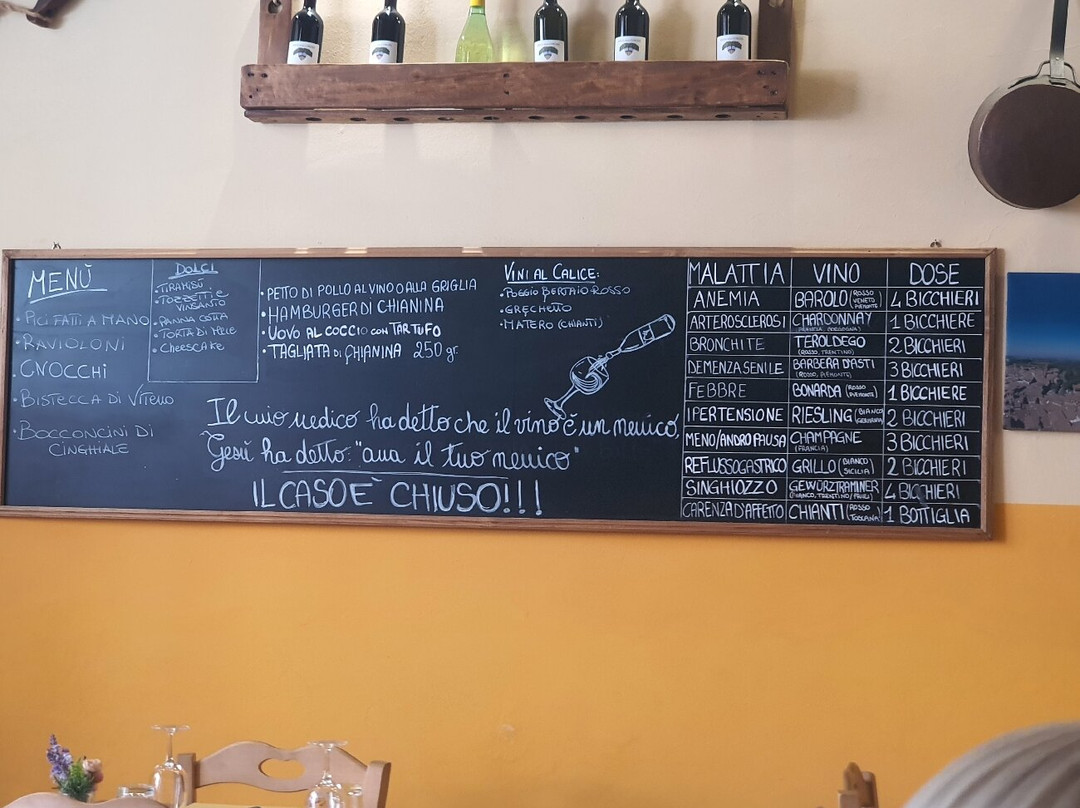 MENÙ
• PICI FATTI A MANO
• RAVIOLONI
• GNOCCHI
• BISTECCA DI VITELLO
• BOCCONCINI DI
CINGHIALE
DOLCI
• TIRAMISÙ
• TOZZETTI e
VINSANTO
• PANNA COTTA
• TORTA DI MELE
• CHEESCAKE
• PETTO DI POLLO AL VINO O ALLA GRIGLIA
• HAMBURGER DI CHIANINA
• UOVO AL COCCIO CON TARTUFO
• TAGLIATA DI CHIANINA 250 gr.
VINI AL CALICE:
• POGGIO BERTAIO ROSSO
• GRECHETTO
• MATERO (CHIANTI)
Il mio medico ha detto che il vino è un nemico,
Gesù ha detto: "ama il tuo nemico"
IL CASO E' CHIUSO!!!
MALATTIA VINO DOSE
ANEMIA BAROLO (ROSSO PIEMONTE) 4 BICCHIERI
ARTEROSCLEROSI CHARDONNAY 1 BICCHIERE
BRONCHITE TEROLDEGO (ROSSO, TRENTINO) 2 BICCHIERI
DEMENZA SENILE BARBERA D'ASTI (ROSSO, PIEMONTE) 3 BICCHIERI
FEBBRE BONARDA (ROSSO PIEMONTE) 1 BICCHIERE
IPERTENSIONE RIESLING (BIANCO GERMANIA) 2 BICCHIERI
MENO/ANDROPAUSA CHAMPAGNE (FRANCIA) 3 BICCHIERI
REFLUSSOGASTRICO GRILLO (BIANCO SICILIA) 2 BICCHIERI
SINGHIOZZO GEWÜRZTRAMINER (BIANCO, TRENTINO/FRIULI) 4 BICCHIERI
CARENZA D'AFFETTO CHIANTI (ROSSO TOSCANA) 1 BOTTIGLIA